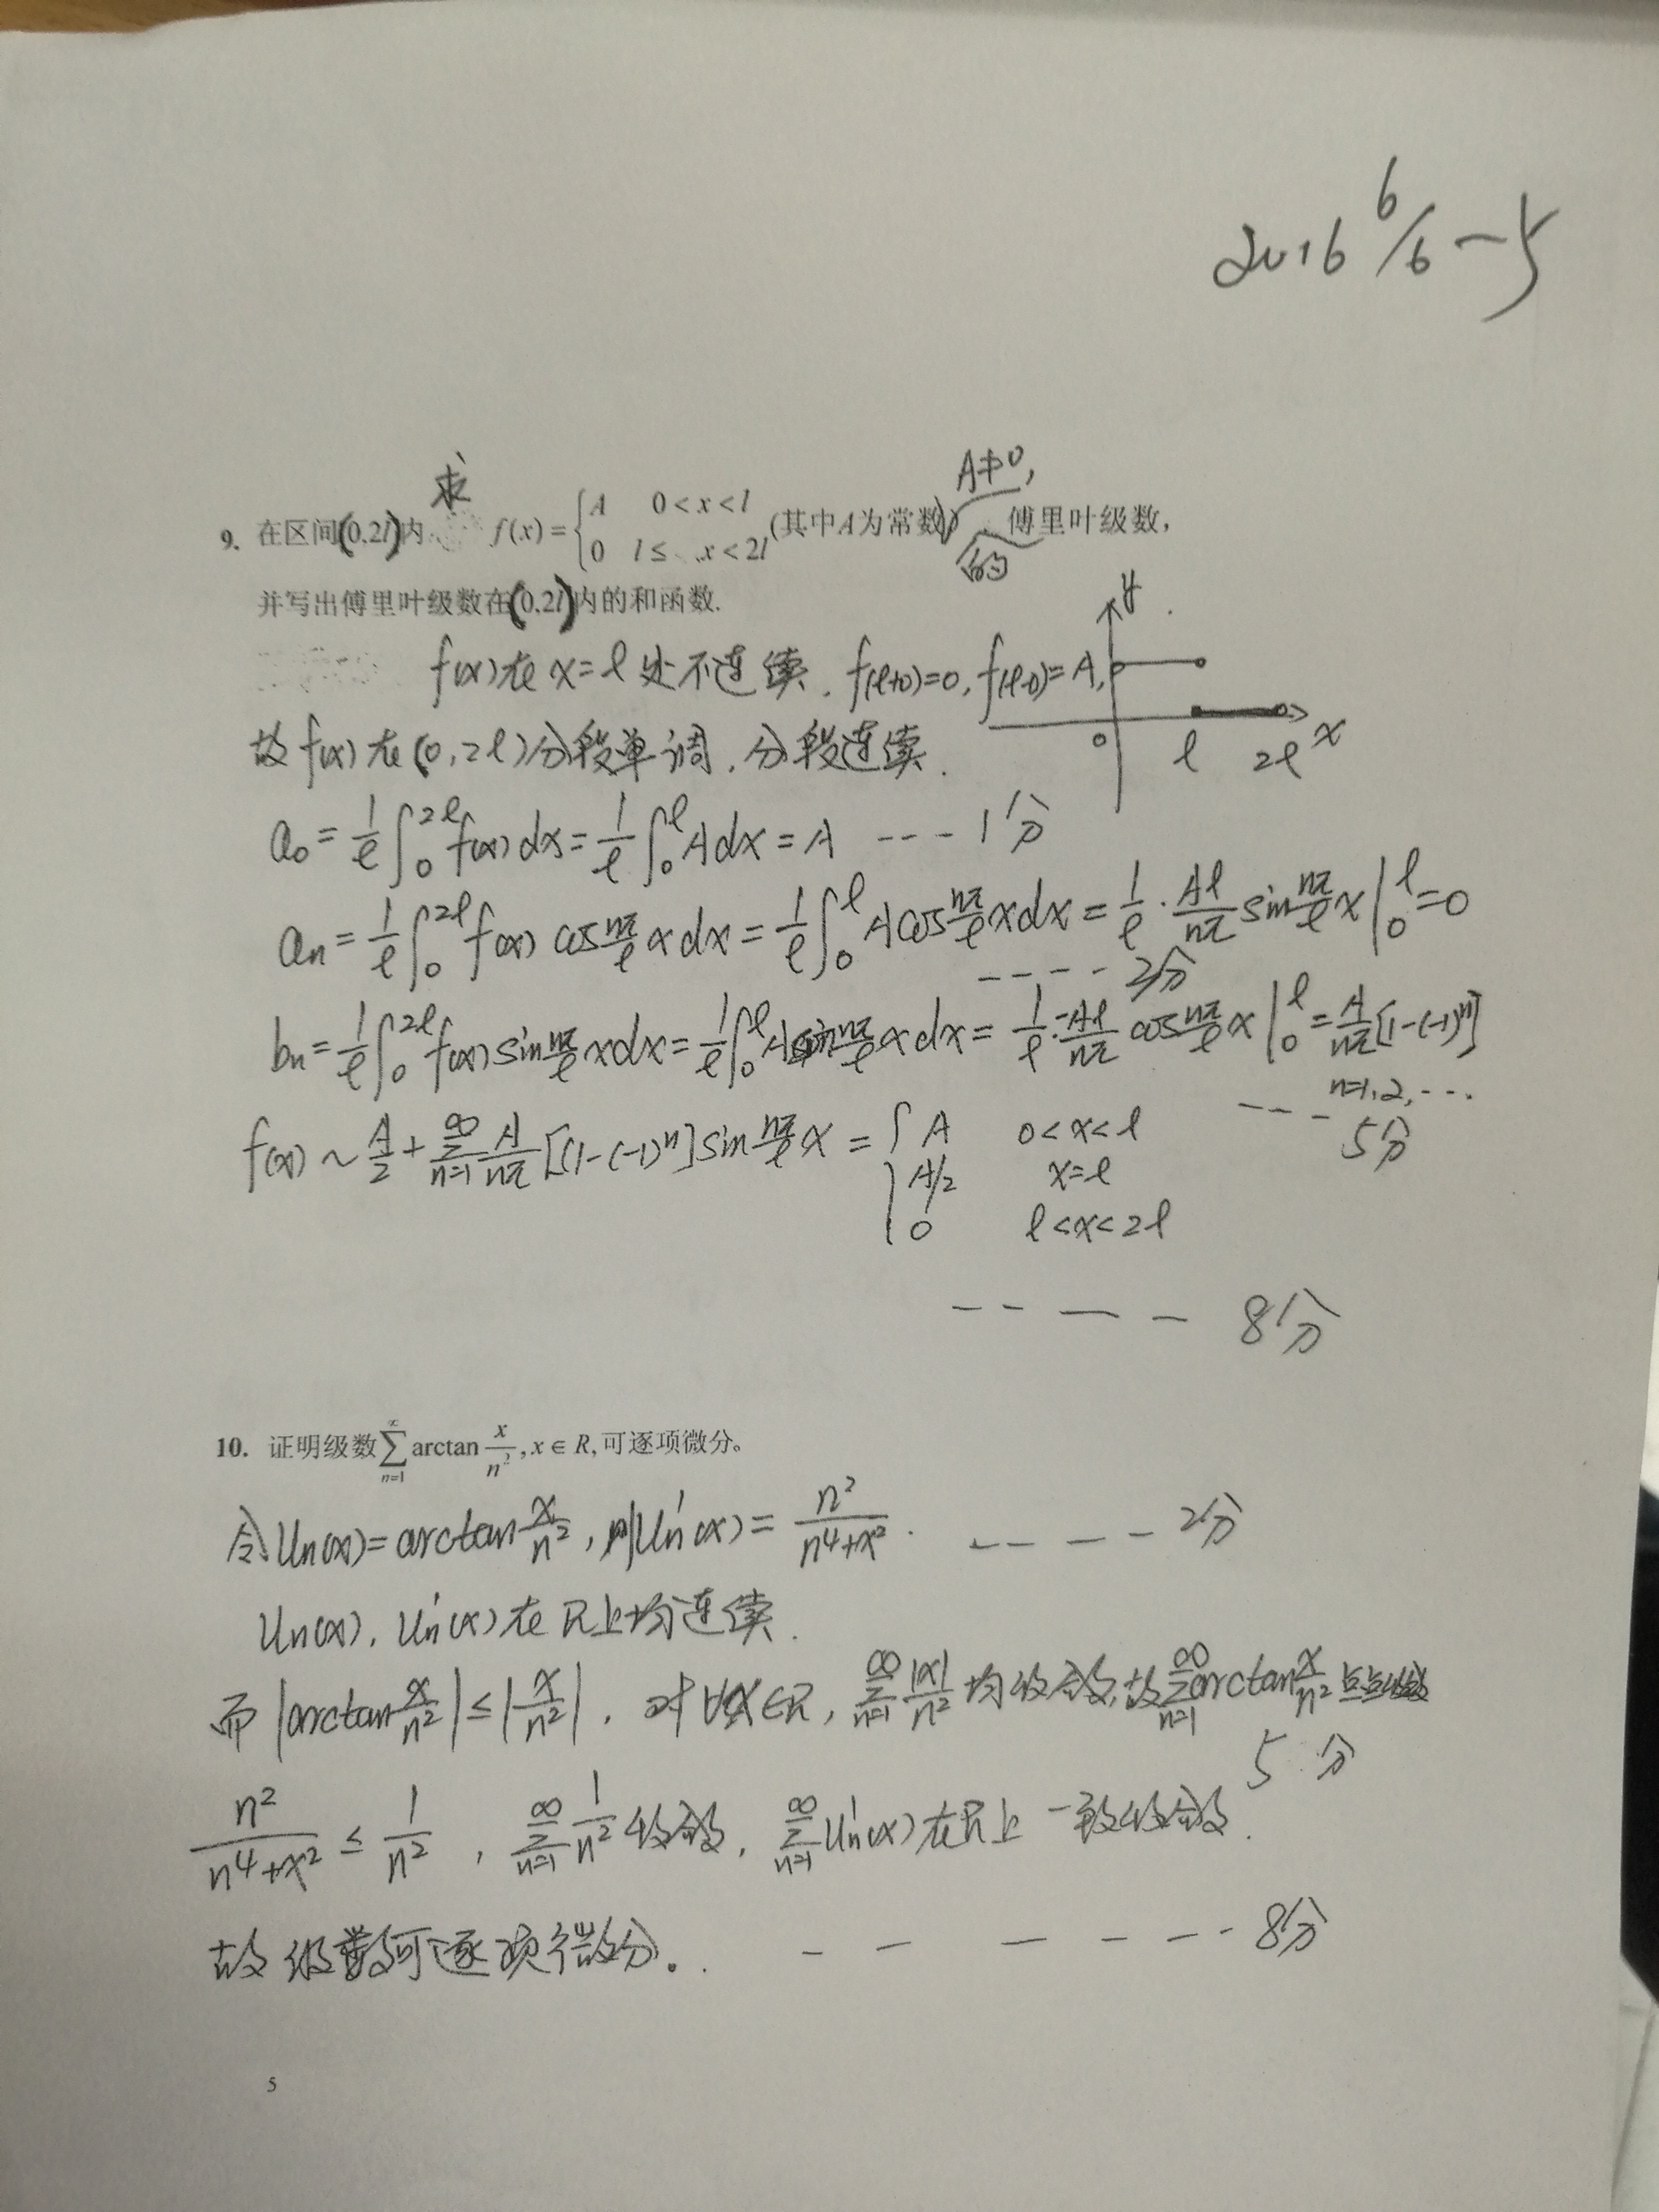 2016 6/6 -5
求 A≠0,
9. 在区间(0,2l)内 f(x)={A 0<x<l (其中A为常数) 傅里叶级数,
0 l≤ x<2l 的
并写出傅里叶级数在(0,2l)内的和函数.
y
f(x)在x=l处不连续. f(l+0)=0, f(l-0)=A,
故f(x)在(0,2l)分段单调,分段连续.
0 l 2l x
a₀=1/l ∫₀^{2l} f(x)dx=1/l ∫₀^l Adx=A ---1分
aₙ=1/l ∫₀^{2l} f(x) cos nπ/l x dx=1/l ∫₀^l A cos nπ/l x dx=1/l · Al/nπ sin nπ/l x |₀^l=0
---- 2分
bₙ=1/l ∫₀^{2l} f(x) sin nπ/l x dx=1/l ∫₀^l A sin nπ/l x dx=1/l · -Al/nπ cos nπ/l x |₀^l=A/nπ[1-(-1)ⁿ]
n=1,2,...
--- 5分
f(x)~A/2+∑_{n=1}^∞ A/nπ [(1-(-1)ⁿ]sin nπ/l x={A 0<x<l
A/2 x=l
0 l<x<2l
---- 8分
10. 证明级数∑_{n=1}^∞ arctan x/n², x∈R,可逐项微分。
令Un(x)=arctan x/n², 则Un'(x)=n²/(n⁴+x²). ---- 2分
Un(x), Un'(x)在R上均连续.
而|arctan x/n²|≤|x/n²|, 对∀x∈R, ∑_{n=1}^∞ |x|/n² 均收敛,故∑_{n=1}^∞ arctan x/n² 点点收敛
5分
n²/(n⁴+x²)≤1/n², ∑_{n=1}^∞ 1/n² 收敛, ∑_{n=1}^∞ Un'(x)在R上一致收敛.
故级数可逐项微分. ------8分
5